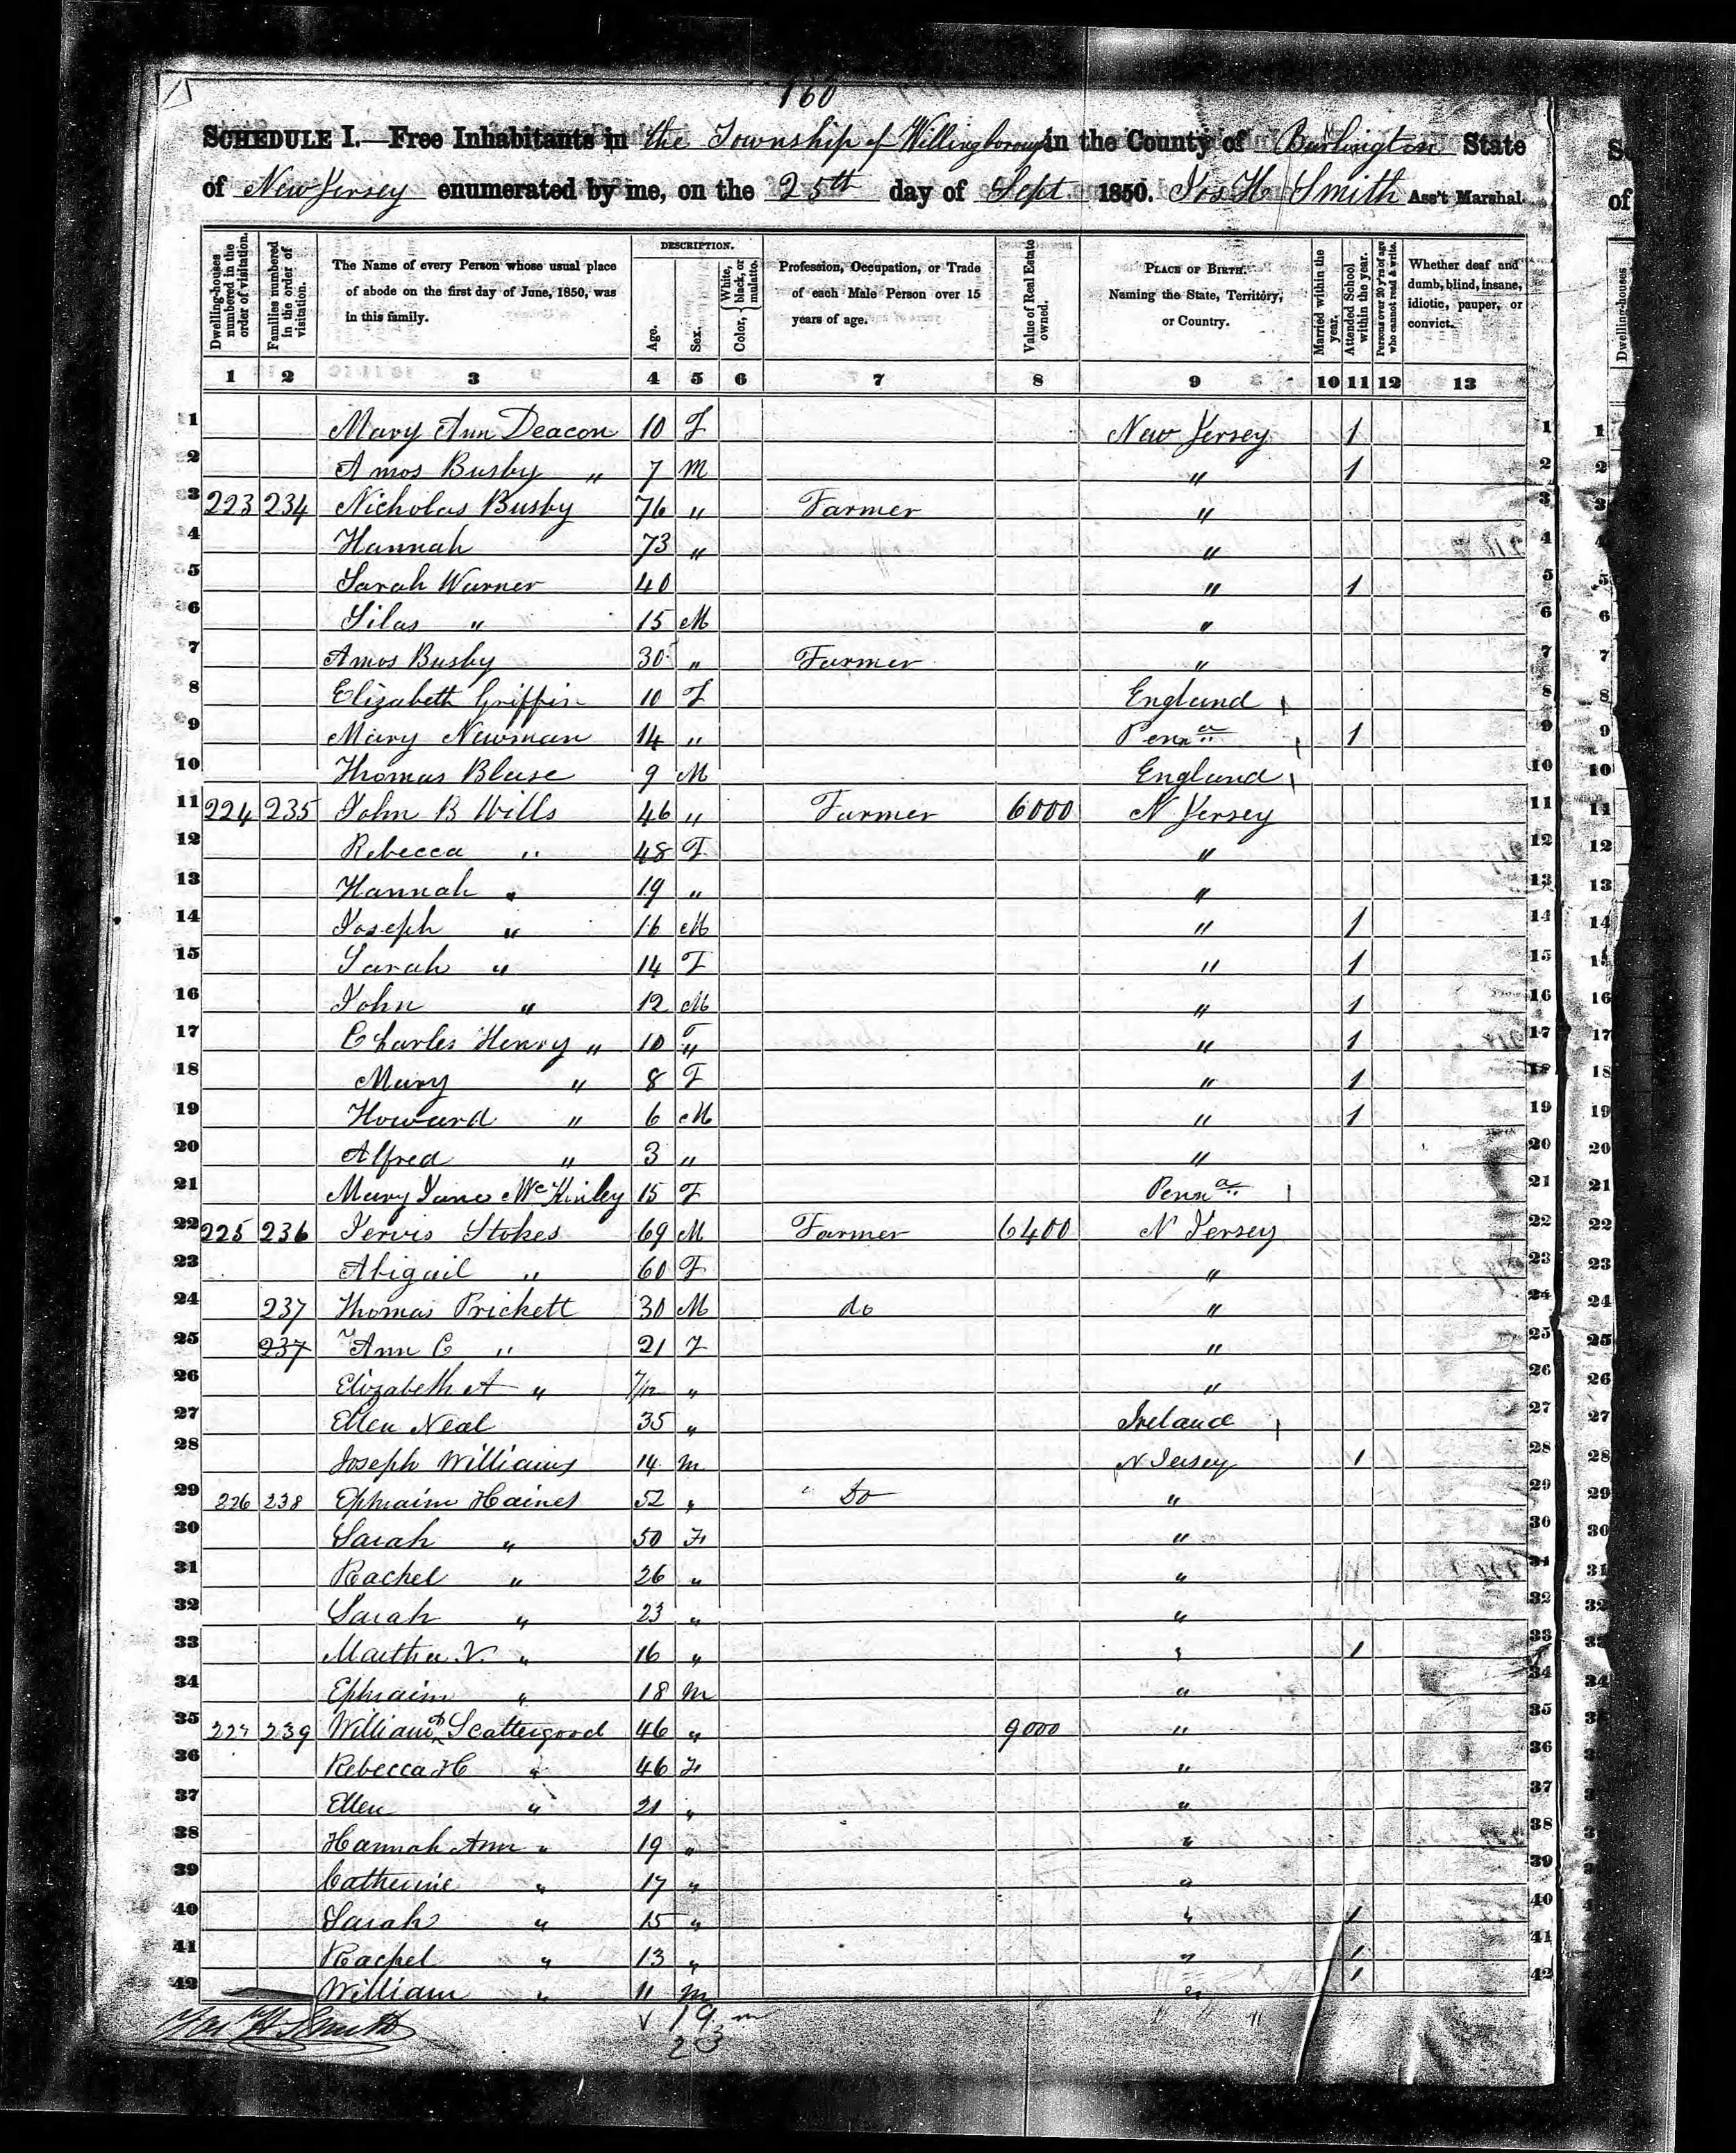 160
SCHEDULE I.—Free Inhabitants in the Township of Willingborough in the County of Burlington State
of New Jersey enumerated by me, on the 25th day of Sept 1850. Jos H Smith Ass't Marshal.
Dwelling-houses numbered in the order of visitation.
Families numbered in the order of visitation.
The Name of every Person whose usual place of abode on the first day of June, 1850, was in this family.
DESCRIPTION.
Age.
Sex.
Color, White, black, or mulatto.
Profession, Occupation, or Trade of each Male Person over 15 years of age.
Value of Real Estate owned.
PLACE OF BIRTH. Naming the State, Territory, or Country.
Married within the year.
Attended School within the year.
Persons over 20 y'rs of age who cannot read & write.
Whether deaf and dumb, blind, insane, idiotic, pauper, or convict.
1 2 3 4 5 6 7 8 9 10 11 12 13
1 Mary Ann Deacon 10 F New Jersey 1 1
2 Amos Busby " 7 M " 1 2
3 223 234 Nicholas Busby 76 " Farmer " 3
4 Hannah 73 " " 4
5 Sarah Warner 40 " 1 5
6 Silas " 15 M " 6
7 Amos Busby 30 " Farmer " 7
8 Elizabeth Griffin 10 F England 8
9 Mary Newman 14 " Penna 1 9
10 Thomas Blase 9 M England 10
11 224 235 John B Wills 46 " Farmer 6000 N Jersey 11
12 Rebecca " 48 F " 12
13 Hannah " 19 " " 13
14 Joseph " 16 M " 1 14
15 Sarah " 14 F " 1 15
16 John " 12 M " 1 16
17 Charles Henry " 10 " " 1 17
18 Mary " 8 F " 1 18
19 Howard " 6 M " 1 19
20 Alfred " 3 " " 20
21 Mary Jane McKinley 15 F Penna 21
22 225 236 Jervis Stokes 69 M Farmer 6400 N Jersey 22
23 Abigail " 60 F " 23
24 237 Thomas Prickett 30 M do " 24
25 237 Ann C " 21 F " 25
26 Elizabeth A " 7/12 " " 26
27 Ellen Neal 35 " Ireland 27
28 Joseph Williams 14 M N Jersey 1 28
29 226 238 Ephraim Haines 52 " Do " 29
30 Sarah " 50 F " 30
31 Rachel " 26 " " 31
32 Sarah " 23 " " 32
33 Martha N. " 16 " " 1 33
34 Ephraim " 18 M " 34
35 227 239 William Scattergood 46 " 9000 " 35
36 Rebecca H " 46 F " 36
37 Ellen " 21 " " 37
38 Hannah Ann " 19 " " 38
39 Catherine " 17 " " 39
40 Sarah " 15 " " 1 40
41 Rachel " 13 " " 1 41
42 William " 11 M " 1 42
Jos H Smith 19 m
23